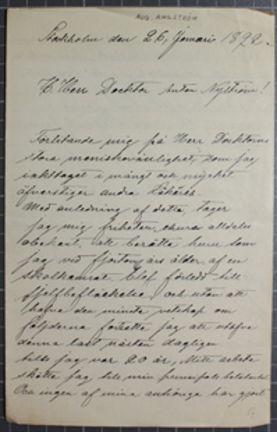 AUG. ANGSTRÖM
Stockholm den 26 Januari 1892.
Herr Docktor Anton Nyström!
Förlitande mig på Herr Docktorns
stora menniskovänlighet, som jag
iakttagit i mångt och mycket
öfverstiger andra Läkares.
Med anledning af detta, tager
jag mig friheten, ehuru alldeles
obekant, att berätta huru som
jag vid fjorton års ålder, af en
skolkamrat blef förledt till
sjelfbefläckelse, och utan att
hafva den minsta vetskap om
följderna fortsatte jag att utöfva
denna last nästan dagligen
tills jag var 20 år. Mitt arbete
skötte jag till min principals belåtenhet
Och ingen af mina anhöriga har gjort